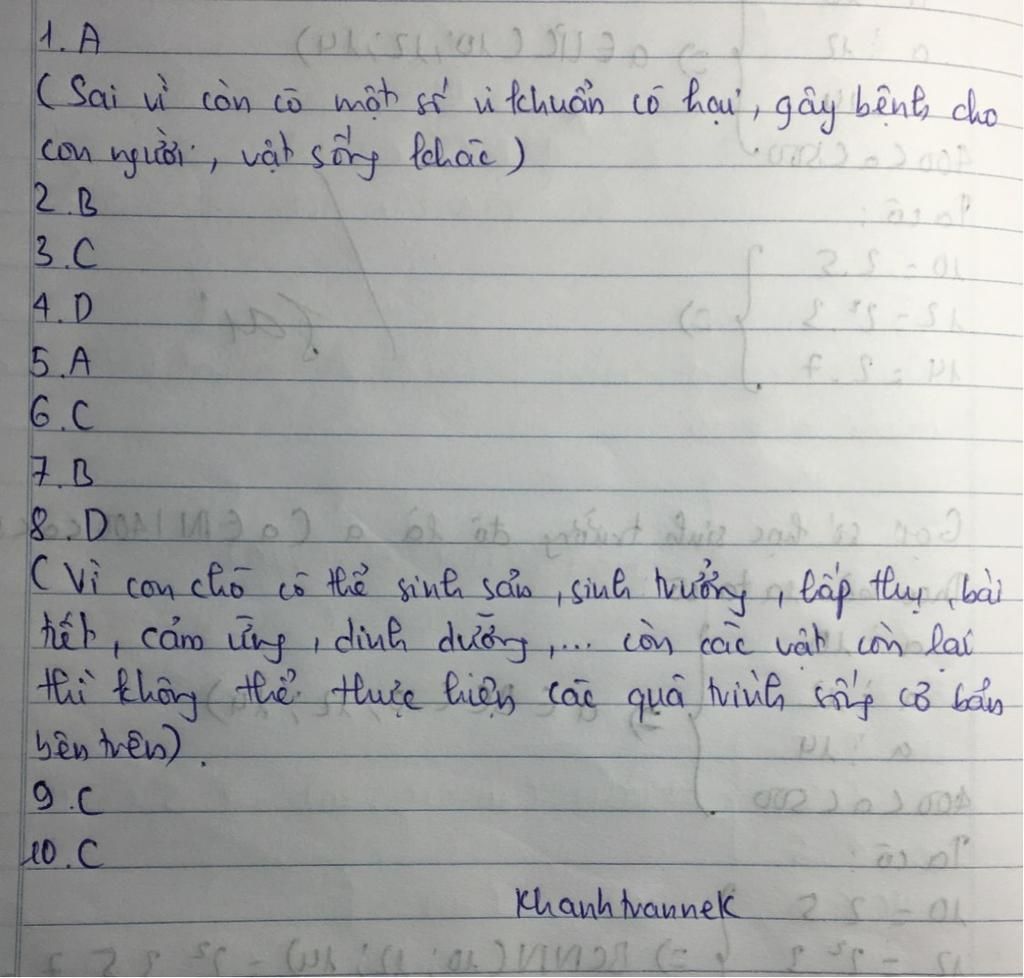 1. A
( Sai vì còn có một số vi khuẩn có hại, gây bệnh cho
con người, vật sống khác)
2. B
3. C
4. D
5. A
6. C
7. B
8. D
( Vì con chó có thể sinh sản, sinh trưởng, hấp thụ, bài
tiết, cảm ứng, dinh dưỡng,... còn các vật còn lại
thì không thể thực hiện các quá trình sống cơ bản
bên trên).
9. C
10. C
Khanhtrannek